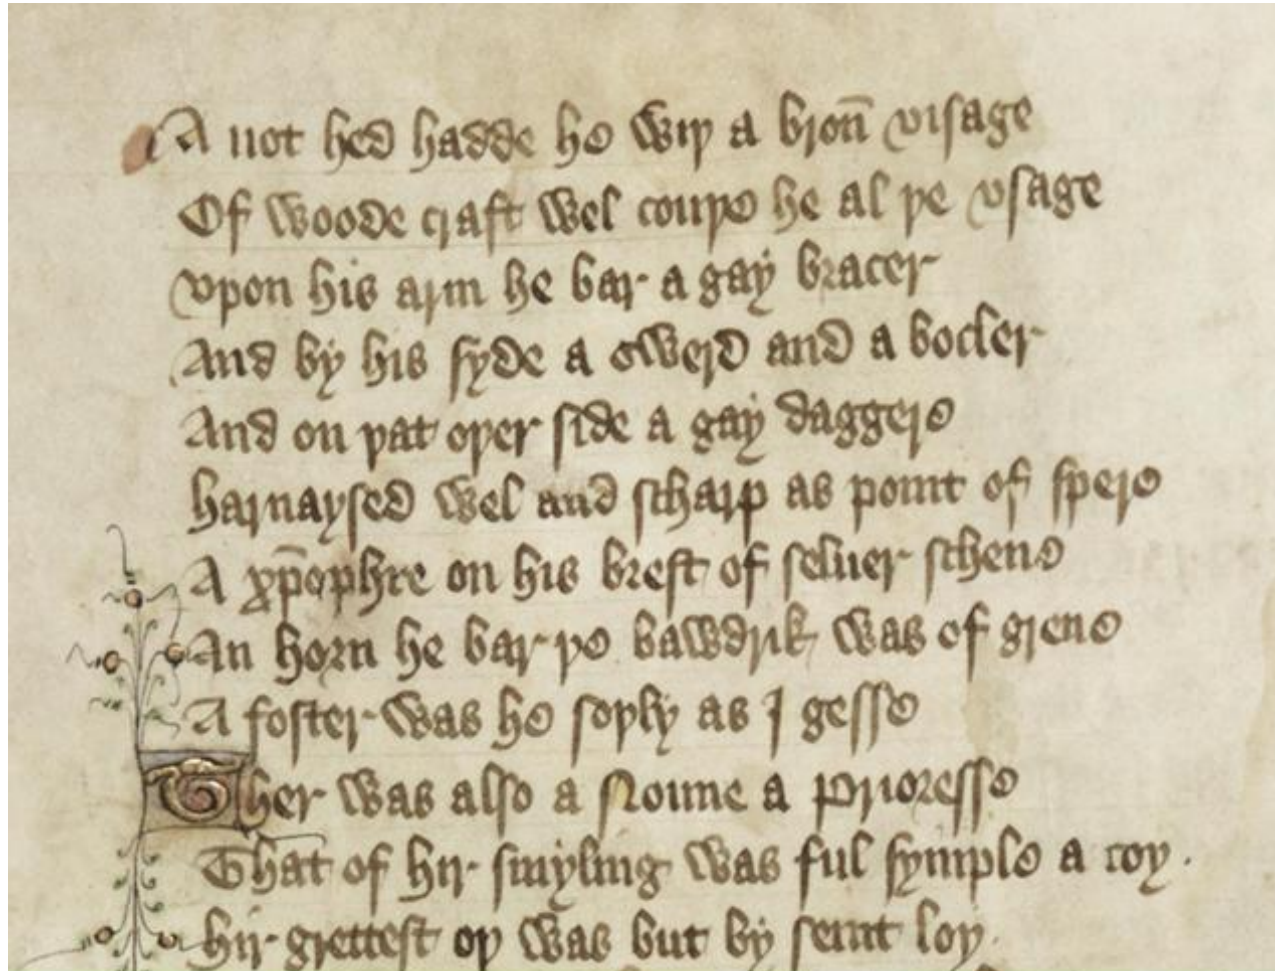 A not hed hadde he wiþ a broū visage
Of woode craft wel couþe he al þe vsage
vpon his arm he bar a gay bracer
And by his syde a swerd and a bocler
And on þat oþer side a gay daggere
harnaysed wel and scharp as point of spere
A xp̄ophre on his brest of seluer schene
An horn he bar þe bawdrik was of grene
A foster was he soþly as I gesse
Ther was also a Nonne a Prioresse
That of hir smyling was ful symple a coy .
hir grettest oþ was but by seint loy .